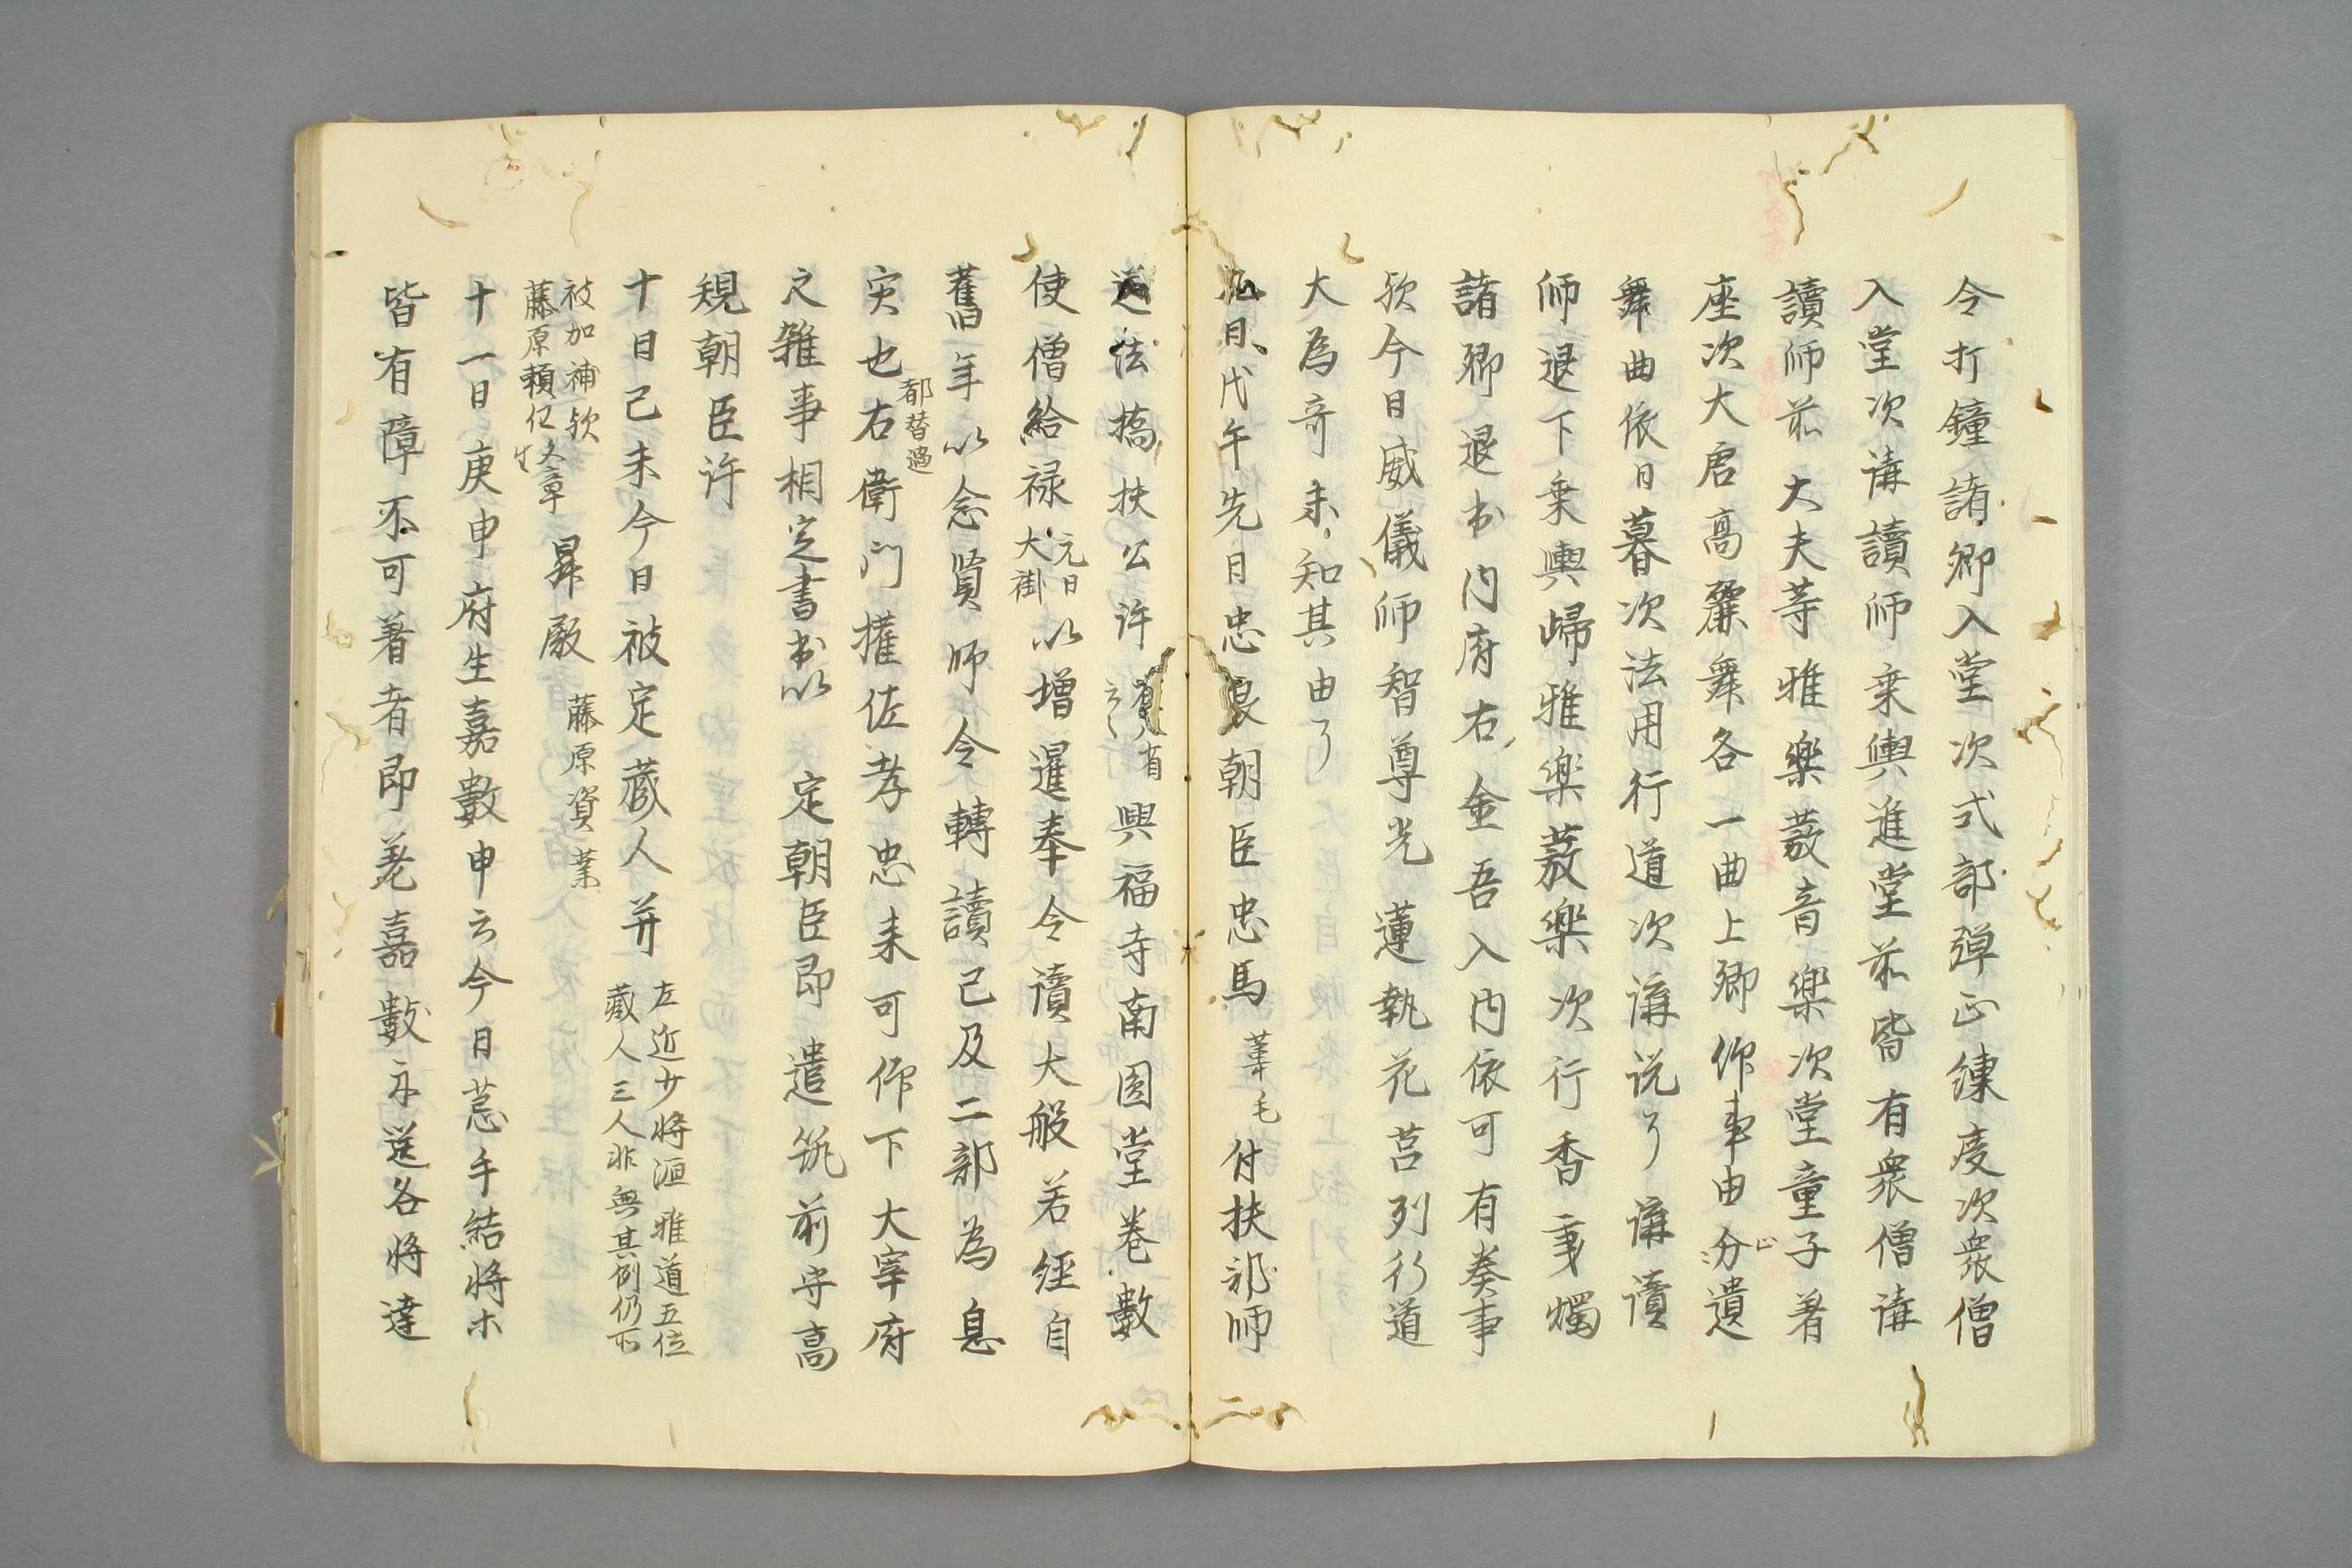 令打鐘諸卿入堂次式部弾正練度次衆僧
入堂次講讀師乗輿進堂前皆有衆僧講
讀師前大夫等雅楽發音楽次堂童子着
座次大唐高麗舞各一曲上卿仰事由分遣
舞曲依日暮次法用行道次講説了講讀
師退下乗輿歸雅楽發楽次行香秉燭
諸卿退出内府右金吾入内依可有奏事
欤今日威儀師智尊光蓮執花筥列行道
大為奇未知其由了
九日戊午先日忠良朝臣忠馬葦毛付扶祁師
送法橋扶公許 興福寺南圓堂巻數
使僧給禄元日大褂以増暹奉令讀大般若經自
舊年以念賢師令轉讀已及二部為息
災也都督過右衛門權佐孝忠来可仰下大宰府
之雑事相定書出以 定朝臣即遣筑前守高
規朝臣許
十日己未今日被定蔵人并左近少将 雅道五位蔵人三人非無其例仍所
被加補欤藤原頼任文章生 昇殿 藤原資業
十一日庚申府生嘉數申云今日荒手結将木
皆有障不可着者即差嘉數示送各将達